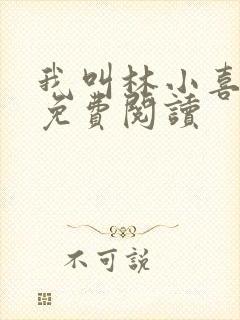 我叫林小喜
免費閱讀
不可説